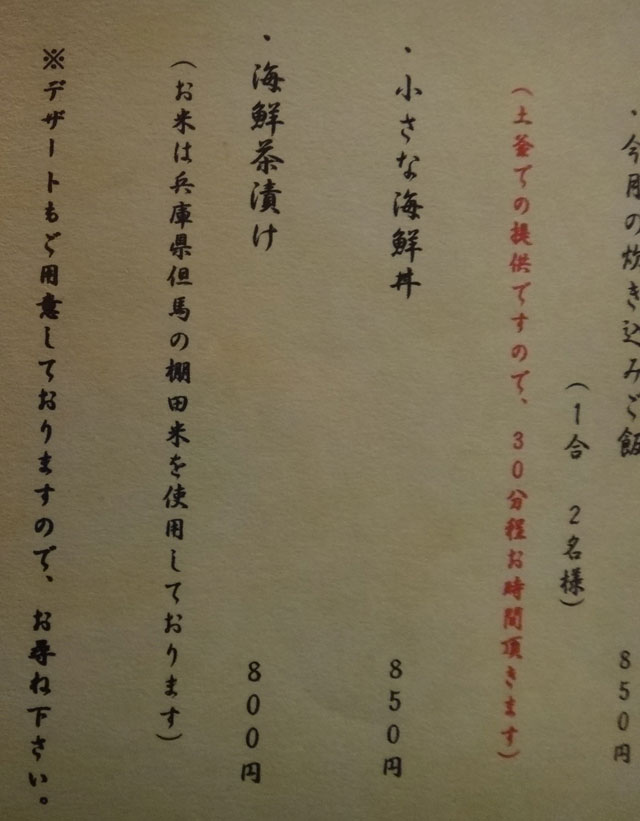 ・今月の炊き込みご飯 850円
(1合 2名様)
(土釜での提供ですので、30分程お時間頂きます)
・小さな海鮮丼 850円
・海鮮茶漬け 800円
(お米は兵庫県但馬の棚田米を使用しております)
※デザートもご用意しておりますので、お尋ね下さい。